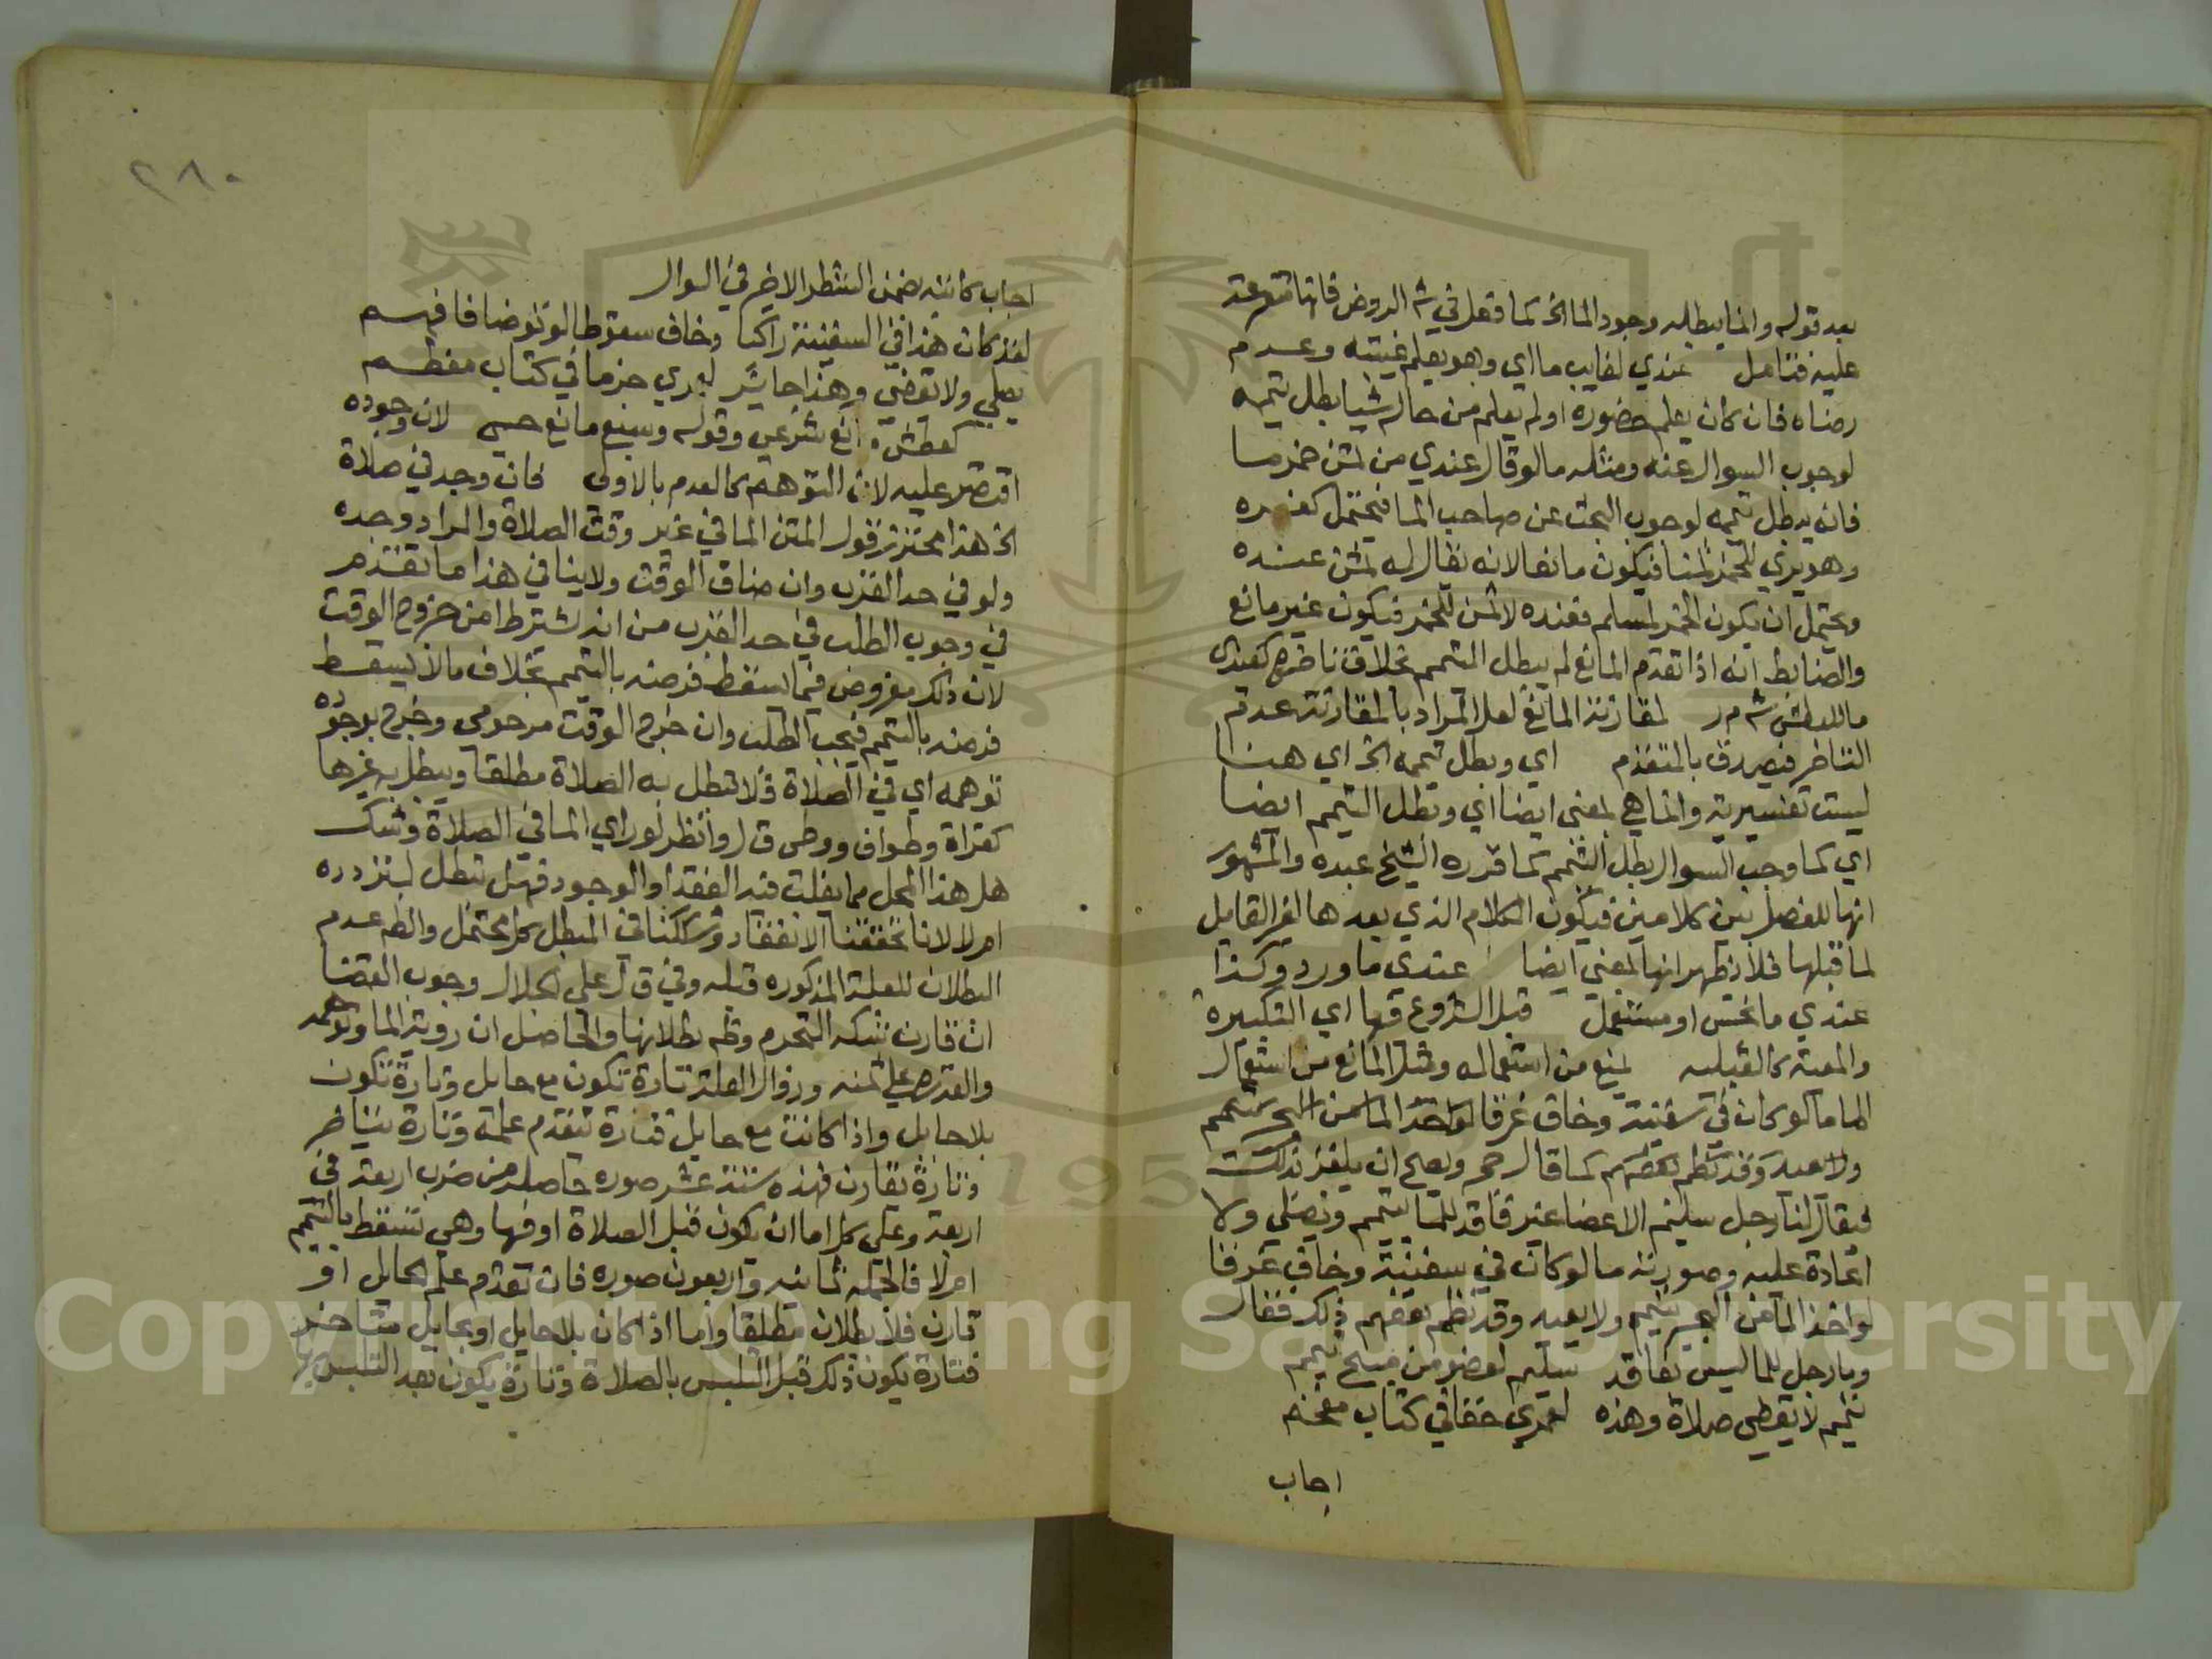 بعد قوله وانما يبطله وجود الما الخ كما فعل في ش الروض فانها متفرعة
عليه فتامل عندي لغايب ما اي وهو يعلم غيبته وعدم
رضاه فان كان يعلم حضوره او لم يعلم من حاله شيا بطل تيممه
لوجوب السوال عنه ومثله ما لو قال عندي من ثمن خمر ما
فانه يبطل تيممه لوجوب البحث عن صاحب الما فيحتمل كفره
وهو يري للخمر ثمنا فيكون مانعا لانه يقال له ثمن عنده
ويحتمل ان يكون الخمر لمسلم فعنده لا ثمن للخمر فيكون غير مانع
والضابط انه اذا تقدم المانع لم يبطل التيمم بخلاف تاخره كعندي
ما للعطش ش م ر لمقارنة المانع لعل المراد بالمقارنة عدم
التاخر فيصدق بالمتقدم اي وبطل تيممه الخ اي هنا
ليست تفسيرية وانما هي بمعنى ايضا اي وبطل التيمم ايضا
اي كما وجب السوال بطل التيمم كما قرره الشيخ عبده والمشهور
انها للفصل بين كلامين فيكون الكلام الذي بعدها لغير القايل
لما قبلها فلا يظهر انها بمعنى ايضا عندي ما ورد وكذا
عندي ما نجس او مستعمل قبل الشروع فيها اي التكبيرة
والمعية كالقبلية لمنع من استعماله ومثل المانع من استعمال
الما ما لو كان في سفينة وخاف غرقا لو اخذ الما من البحر يتيمم
ولا يعيد وقد نظم بعضهم كما قال رحمه ويصح ان يلغز بذلك
فيقال لنا رجل سليم الاعضا غير فاقد للما يتيمم ويصلي ولا
اعادة عليه وصورته ما لو كان في سفينة وخاف غرقا
لو اخذ الما من البحر يتيمم ولا يعيد وقد نظم بعضهم ذلك فقال
وما رجل للما ليس بفاقد سليم لعضو من مبيح تيمم
تيمم لا يقضي صلاة وهذه لعمري خفا في كتاب مفخم
اجاب
٢٨٠
اجاب كاتبه بضمن الشطر الاخير في السوال
لقد كان هذا في السفينة راكبا وخاف سقوطا لو توضا فافهم
يصلي ولا يقضي وهذا جايز لعمري جزما في كتاب معظم
كعطش مانع شرعي وقوله وسبع مانع حسي لان وجوده
اقتصر عليه لان التوهم كالعدم بالاولى فان وجد في صلاة
الخ هذا محترز قول المتن الما في غير وقت الصلاة والمراد وجده
ولو في حد القرب وان ضاق الوقت ولا ينافي هذا ما تقدم
في وجوب الطلب في حد القرب من انه يشترط امن خروج الوقت
لان ذلك مفروض فيما يسقط فرضه بالتيمم بخلاف ما لا يسقط
فرضه بالتيمم فيجب الطلب وان خرج الوقت مرحومي وخرج بوجوده
توهمه اي في الصلاة فلا تبطل به الصلاة مطلقا ويبطل به غيرها
كقراة وطواف ووطئ ق ل وانظر لو راي الما في الصلاة وشك
هل هذا المحل مما يغلب فيه الفقد او الوجود فهل تبطل لتردده
ام لا لانا تحققنا الانعقاد وشككنا في المبطل كل محتمل والظه عدم
البطلان للعلة المذكوره قبله وفي ق ل على الجلال وجوب القضا
ان قارن شكه التحرم وظه بطلانها والحاصل ان روية الما وتوهمه
والقدرة على ثمنه وزوال العلة تارة تكون مع حايل وتارة تكون
بلا حايل واذا كانت مع حايل فتارة يتقدم علمه وتارة يتاخر
وتارة يقارن فهذه ستة عشر صوره حاصله من ضرب اربعة في
اربعة وعلى كل اما ان يكون قبل الصلاة او فيها وهي تسقط بالتيمم
ام لا فالجملة ثمانيه واربعون صوره فان تقدم علم الحايل او
قارن فلا بطلان مطلقا واما اذا كان بلا حايل او بحايل متاخر
فتارة يكون ذلك قبل التلبس بالصلاة وتارة يكون بعد التلبس بها
Copyright © King Saud University
1957